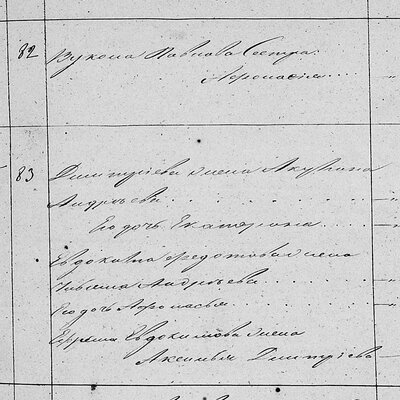 82 Вукола Павлова Сестра
Афонасія
83 Дмитріева жена Акулина
Андреева
Ею дочь Екатерина
Евдокима Федотова жена
Андреева
Ею дочь Афонасья
Ефрема Евдокимова жена
Аксинья Дмитріева